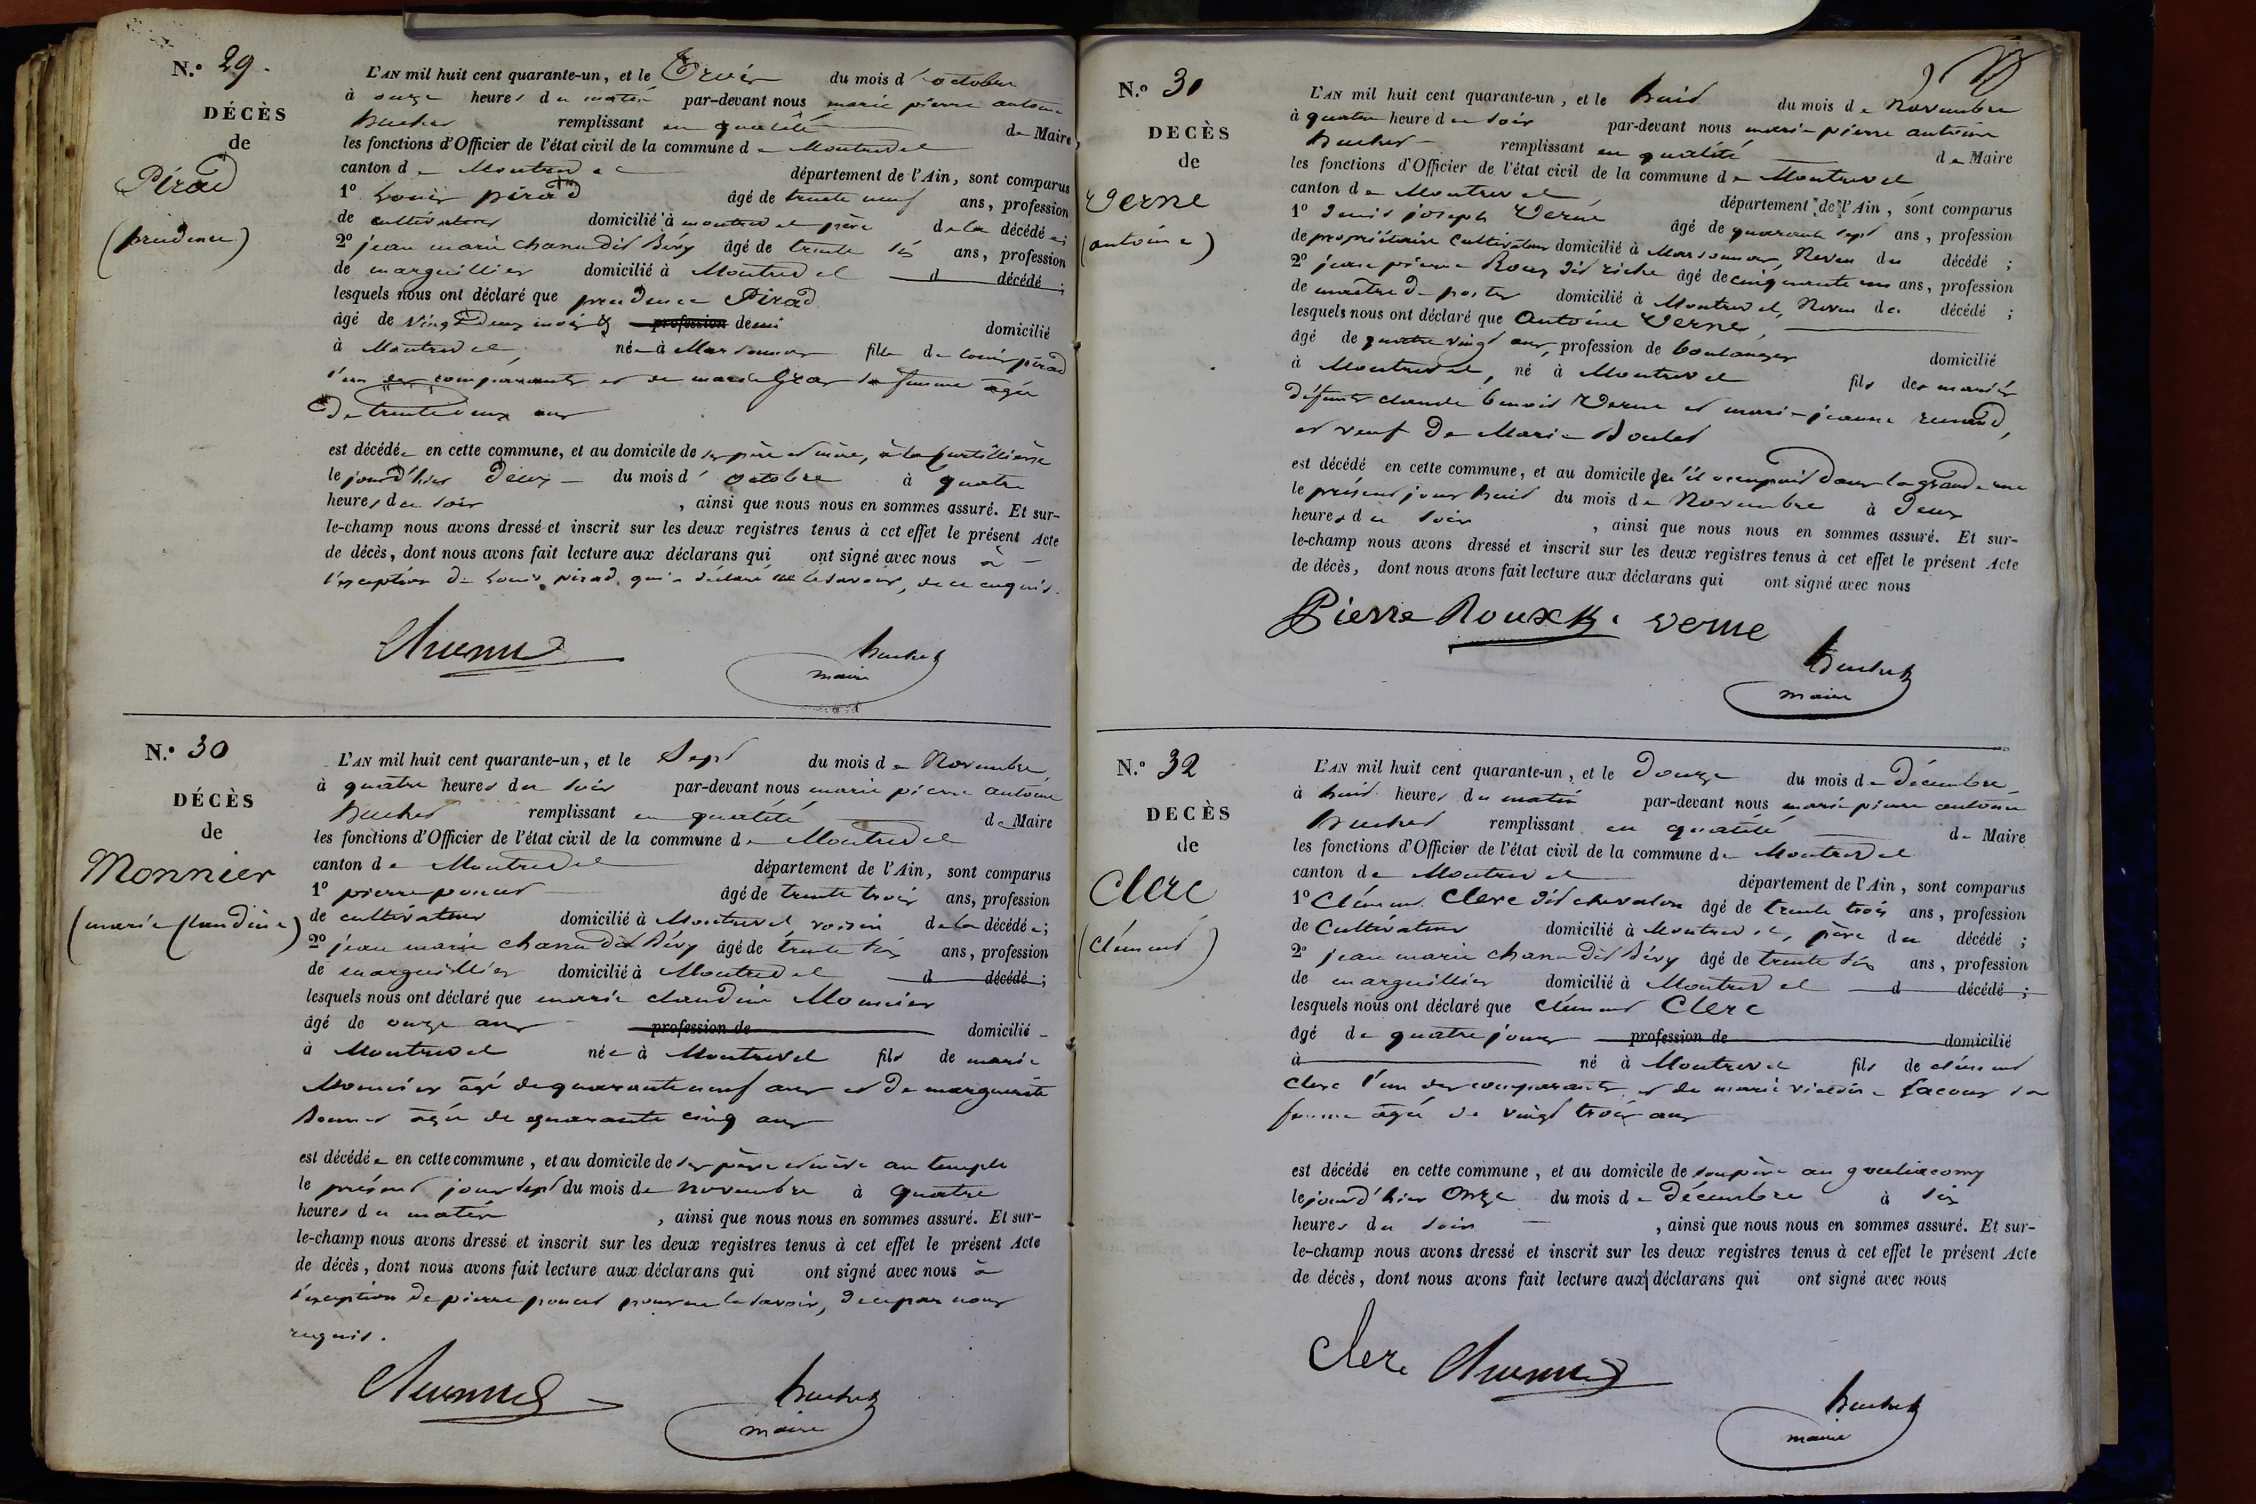 N.° 29.
DÉCÈS
de
Pirad
(prudence)
L'AN mil huit cent quarante-un, et le Trois du mois d'octobre
à onze heures du matin par-devant nous marie pierre antoine
huchet remplissant en qualité de Maire
les fonctions d'Officier de l'état civil de la commune de Montrevel
canton de Montrevel département de l'Ain, sont comparus
1° Louis pirad âgé de trente neuf ans, profession
de cultivateur domicilié à montrevel père de la décédée;
2° jean marie chanu dit Sévy âgé de trente six ans, profession
de marguillier domicilié à Montrevel d décédé;
lesquels nous ont déclaré que prudence Pirad
âgé de vingt deux mois & profession demi domicilié
à Montrevel, née à Marsonnas fille de louis pirad
l'un des comparants et de marie Gras sa femme âgée
de trente deux ans
est décédée en cette commune, et au domicile de ses père et mère, à la
le jour d'hier deux du mois d'octobre à quatre
heures du soir, ainsi que nous nous en sommes assuré. Et sur-
le-champ nous avons dressé et inscrit sur les deux registres tenus à cet effet le présent Acte
de décès, dont nous avons fait lecture aux déclarans qui ont signé avec nous à
l'exception de Louis pirad qui a déclaré ne le savoir, de ce enquis.
huchet
maire
N.° 30
DÉCÈS
de
Monnier
(marie Claudine)
L'AN mil huit cent quarante-un, et le Sept du mois de Novembre,
à quatre heures du soir par-devant nous marie pierre antoine
huchet remplissant en qualité de Maire
les fonctions d'Officier de l'état civil de la commune de Montrevel
canton de Montrevel département de l'Ain, sont comparus
1° pierre poncet âgé de trente trois ans, profession
de cultivateur domicilié à Montrevel voisin de la décédée;
2° jean marie chanu dit Sévy âgé de trente six ans, profession
de marguillier domicilié à Montrevel d décédé;
lesquels nous ont déclaré que marie claudine Monnier
âgé de onze ans profession de domicilié
à Montrevel née à Montrevel fils de marie
Monnier âgé de quarante neuf ans et de marguerite
âgée de quarante cinq ans
est décédée en cette commune, et au domicile de ses père et mère au temple
le présent jour sept du mois de novembre à quatre
heures du matin, ainsi que nous nous en sommes assuré. Et sur-
le-champ nous avons dressé et inscrit sur les deux registres tenus à cet effet le présent Acte
de décès, dont nous avons fait lecture aux déclarans qui ont signé avec nous à
l'exception de pierre poncet pour ne le savoir, de ce par nous
requis.
huchet
maire
N.° 31
DECÈS
de
Verne
(antoine)
L'AN mil huit cent quarante-un, et le huit du mois de Novembre
à quatre heure du soir par-devant nous marie pierre antoine
huchet remplissant en qualité de Maire
les fonctions d'Officier de l'état civil de la commune de Montrevel
canton de Montrevel département de l'Ain, sont comparus
1° denis joseph Verne âgé de quarante sept ans, profession
de propriétaire cultivateur domicilié à Marsonnas, Neveu du décédé;
2° jean pierre Roux dit riche âgé de cinquante un ans, profession
de maître de postes domicilié à Montrevel, Neveu du décédé;
lesquels nous ont déclaré que Antoine Verne,
âgé de quatre vingt ans, profession de boulanger domicilié
à Montrevel, né à Montrevel fils des mariés
défunts claude benoit Verne et marie jeanne renaud,
et veuf de Marie Boulet
est décédé en cette commune, et au domicile qu'il occupait dans la grande rue
le présent jour huit du mois de Novembre à deux
heures du soir, ainsi que nous nous en sommes assuré. Et sur-
le-champ nous avons dressé et inscrit sur les deux registres tenus à cet effet le présent Acte
de décès, dont nous avons fait lecture aux déclarans qui ont signé avec nous
Pierre Roux verne
huchet
maire
N.° 32
DECÈS
de
Clerc
(clément)
L'AN mil huit cent quarante-un, et le douze du mois de décembre,
à huit heures du matin par-devant nous marie pierre antoine
huchet remplissant en qualité de Maire
les fonctions d'Officier de l'état civil de la commune de Montrevel
canton de Montrevel département de l'Ain, sont comparus
1° Clément Clerc dit chevalon âgé de trente trois ans, profession
de Cultivateur domicilié à Montrevel, père du décédé;
2° jean marie chanu dit Sévy âgé de trente six ans, profession
de marguillier domicilié à Montrevel d décédé;
lesquels nous ont déclaré que clément Clerc
âgé de quatre jours profession de domicilié
à né à Montrevel fils de clément
Clerc l'un des comparants et de marie Lacour sa
femme âgée de vingt trois ans
est décédé en cette commune, et au domicile de son père au
le jour d'hier Onze du mois de décembre à six
heures du soir, ainsi que nous nous en sommes assuré. Et sur-
le-champ nous avons dressé et inscrit sur les deux registres tenus à cet effet le présent Acte
de décès, dont nous avons fait lecture aux déclarans qui ont signé avec nous
Clerc
huchet
maire